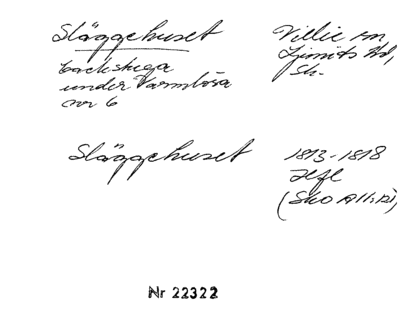 Släggehuset
Villie sn,
Ljunits hd,
Sk.
backstuga
under Varmlösa
nr 6
Släggehuset
1813-1818
Hfl
(Sko AII:12),
Nr 22322